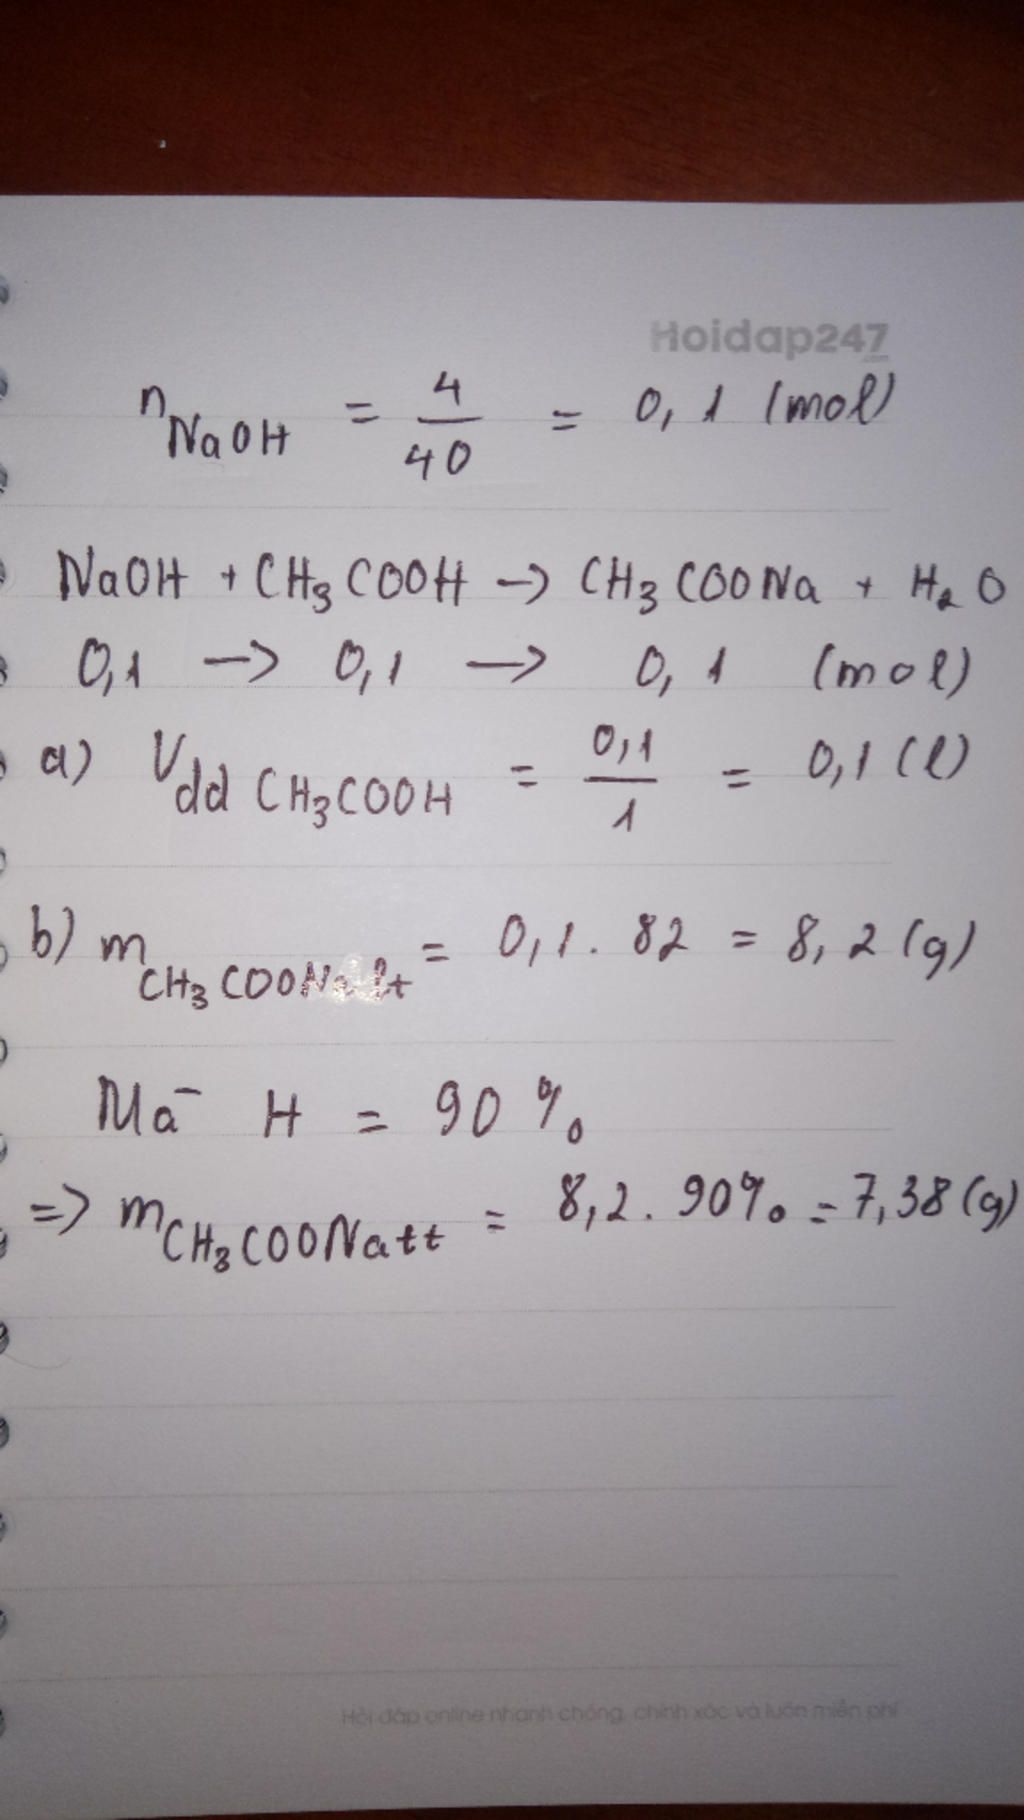 Hoidap247
n NaOH = 4/40 = 0,1 (mol)
NaOH + CH3COOH -> CH3COONa + H2O
0,1 -> 0,1 -> 0,1 (mol)
a) Vdd CH3COOH = 0,1/1 = 0,1 (l)
b) m CH3COONa lt = 0,1 . 82 = 8,2 (g)
Mà H = 90%
=> m CH3COONa tt = 8,2 . 90% = 7,38 (g)
Hỏi đáp online nhanh chóng, chính xác và luôn miễn phí